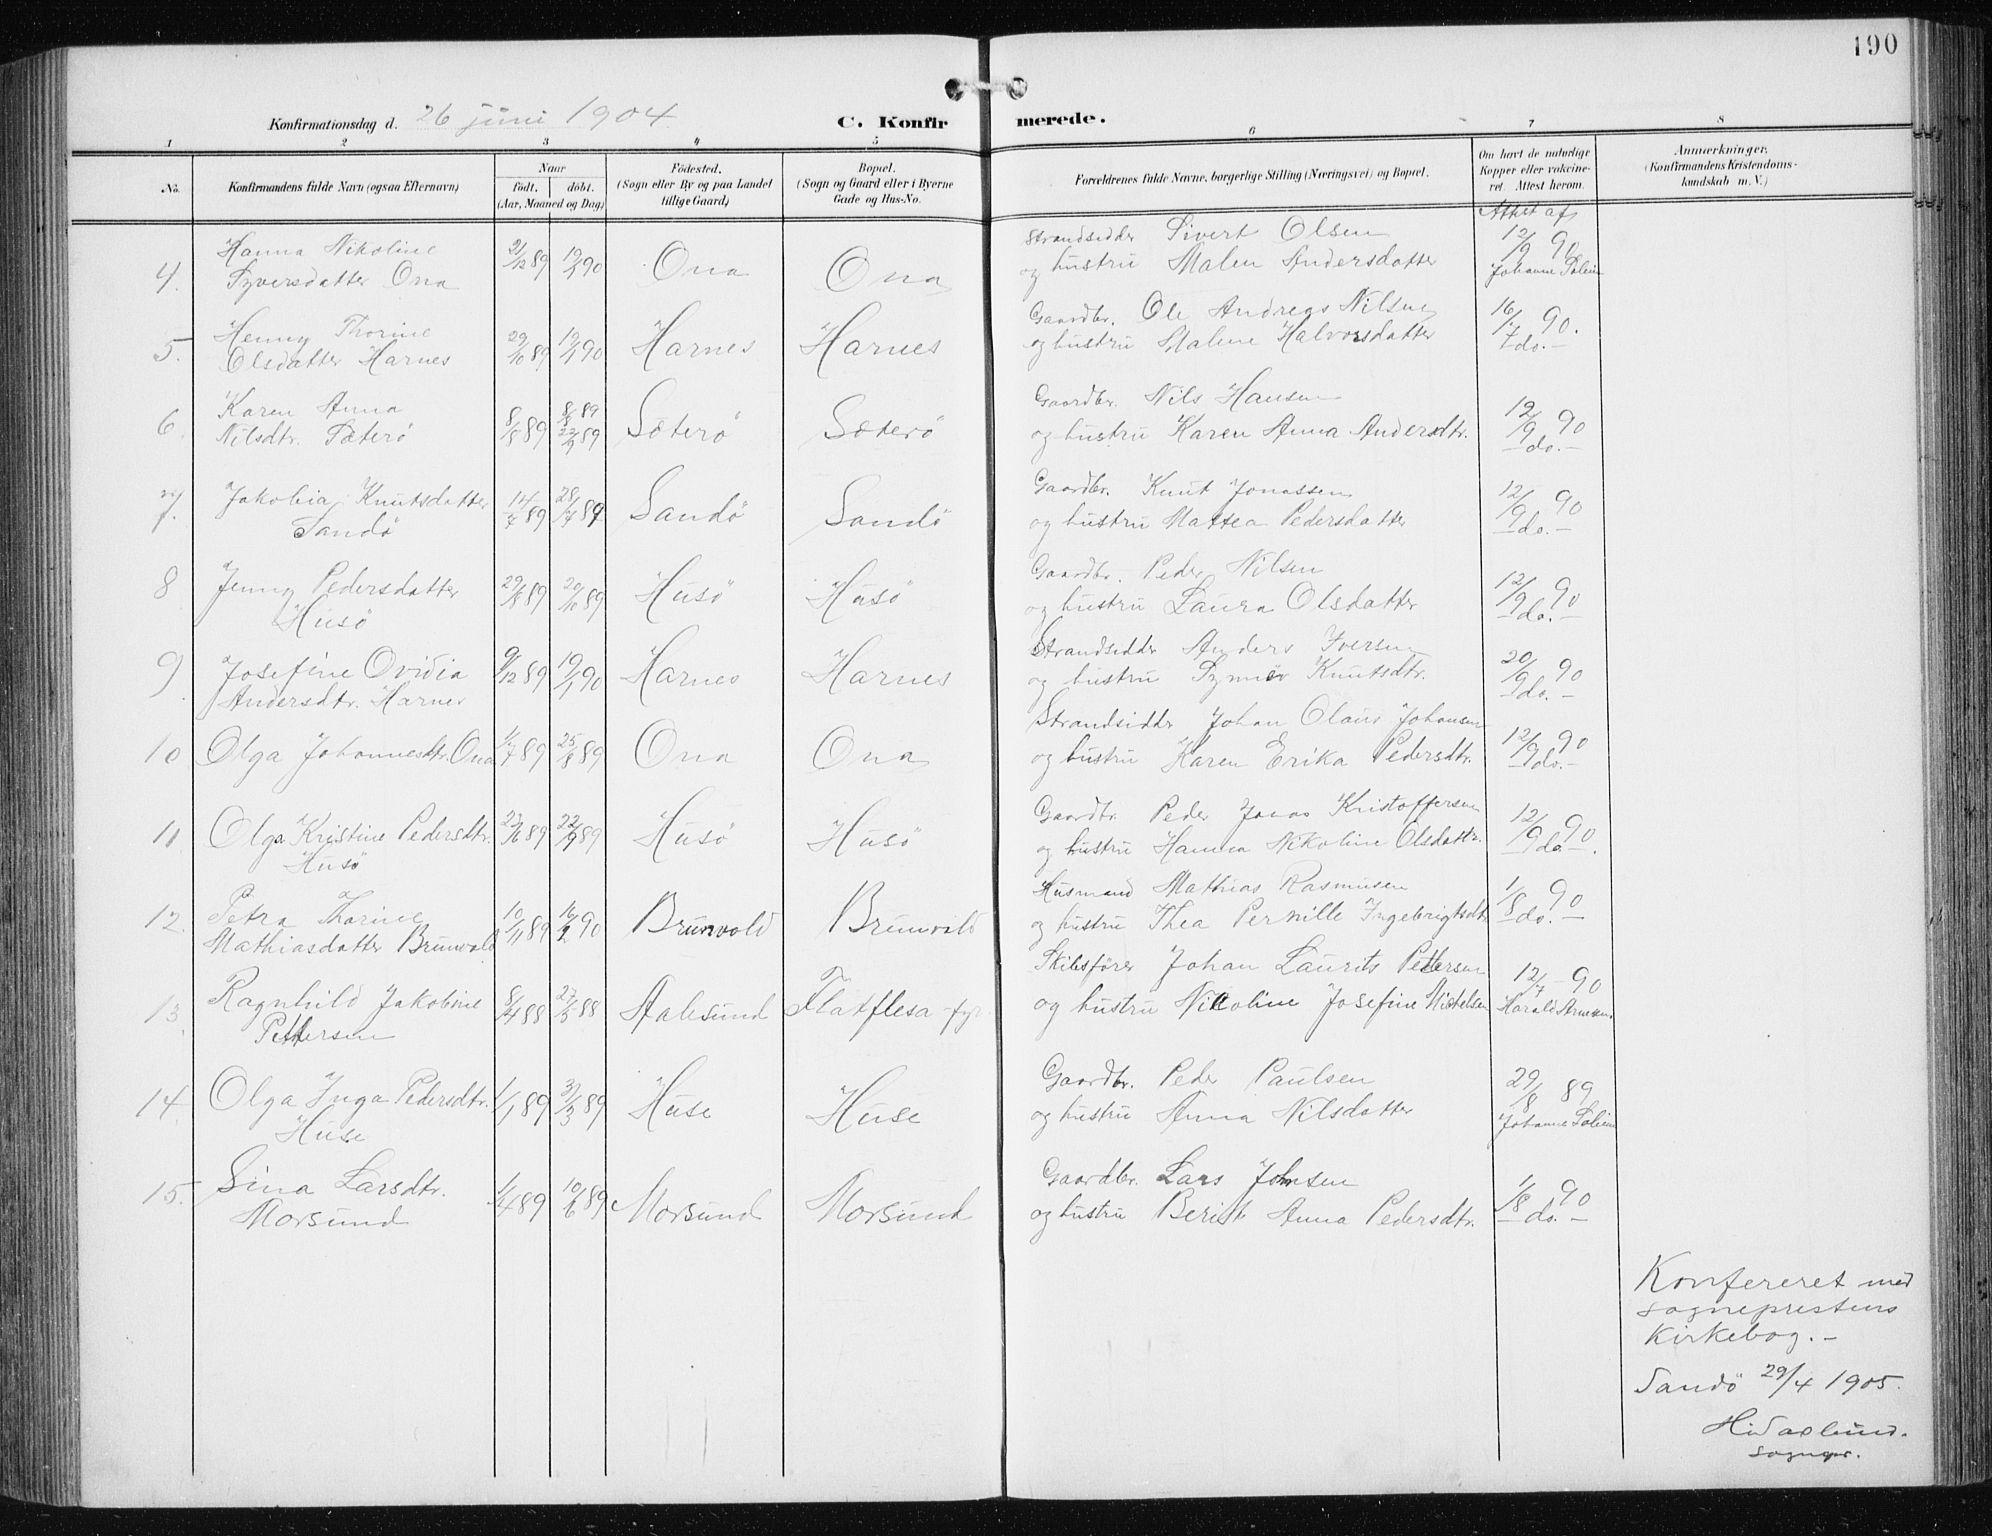 190
Konfirmationsdag d. 26 juni 1904
C. Konfirmerede.
1 2 3 4 5 6 7 8
No.
Konfirmandens fulde Navn (ogsaa Efternavn)
Naar
født. døbt.
(Aar, Maaned og Dag)
Fødested.
(Sogn eller By og paa Landet
tillige Gaard)
Bopæl.
(Sogn og Gaard eller i Byerne
Gade og Hus-No.
Forældrenes fulde Navne, borgerlige Stilling (Næringsvei) og Bopæl.
Om havt de naturlige
Kopper eller vakcine-
ret. Attest herom.
Anmærkninger.
(Konfirmandens Kristendoms-
kundskab m. V.)
Attest af
4. Hanna Nikoline 21/12 89 19/1 90 Ona Ona Strandsidder Sivert Olsen 12/9 90
Syversdatter Ona og hustru Malen Andersdatter Johanne Solein
5. Henny Thorine 29/10 89 19/1 90 Harnes Harnes Gaardbr. Ole Andreas Nilsen 16/7 90.
Olsdatter Harnes og hustru Malene Halvorsdatter do. —
6. Karen Anna 8/8 89 8/8 89 22/9 89 Sæterö Sæterö Gaardbr. Nils Hansen 12/9 90
Nilsdtr. Sæterö og hustru Karen Anna Andersdtr. — do. —
7. Jakobia Knutsdatter 14/7 89 28/7 89 Sandö Sandö Gaardbr. Knut Jonassen 12/9 90
Sandö og hustru Mattea Pedersdatter — do. —
8 Jenny Pedersdatter 29/8 89 20/10 89 Husö Husö Gaardbr. Peder Nilsen 12/9 90
Husö og hustru Laura Olsdatter — do. —
9. Josefine Ovidia 9/12 89 19/1 90 Harnes Harnes Strandsidder Anders Iversen 20/9 90
Andersdtr. Harnes og hustru Synnöv Knutsdtr. — do. —
10 Olga Johannesdtr. Ona 1/7 89 25/8 89 Ona Ona Strandsidder Johan Olaus Johansen 12/9 90
og hustru Karen Erika Pedersdtr. — do. —
11 Olga Kristine Pedersdtr. 89 22/9 89 Husö Husö Gaardbr. Peder Jonas Kristoffersen 12/9 90
Husö og hustru Hanna Nikoline Olsdattr. — do. —
12. Petra Thorine 10/11 89 16/2 90 Brunvold Brunvold Husmand Mathias Rasmusen 1/8 90
Mathiasdatter Brunvold og hustru Thea Pernille Ingebrigtsdtr. — do. —
13. Ragnhild Jakobine 8/4 88 27/5 88 Aalesund Flatflesa fyr. Skibsförer Johan Laurits Pettersen 12/7 90
Pettersen og hustru Nicoline Josefine Mickelsen Harald Arnesen
14. Olga Inga Pedersdtr. 1/1 89 31/3 89 Huse Huse Gaardbr. Peder Paulsen 29/8 89
Huse og hustru Anna Nilsdatter Johanne Solein
15. Sina Larsdtr. 1/4 89 10/6 89 Morsund Morsund Gaardbr. Lars Johnsen 1/8 90
Morsund og hustru Berit Anna Pedersdtr. — do. —
Konfereret med
sogneprestens
Kirkebog. —
Sandö 29/4 1905.
sognepr.